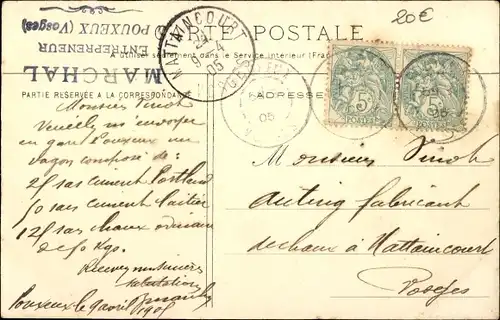 CARTE POSTALE
20€
A utiliser seulement dans le Service intérieur (Fra
MARCHAL
ENTREPRENEUR
POUXEUX (Vosges)
MATTAINCOURT
05
VOSGES
05
5c
5c
POSTES
PARTIE RÉSERVÉE A LA CORRESPONDANCE
ADRESSE
Monsieur Vinot
Veuillez m'envoyer
en gare Pouxeux un
wagon composé de:
25 sacs ciment Portland
50 sacs ciment laitier
125 sacs chaux ordinaire
de 50 Kgs.
Recevez mes sincères
salutations
Pouxeux le 9 avril
1905
Monsieur Vinot
fabricant
de chaux à Mattaincourt
Vosges